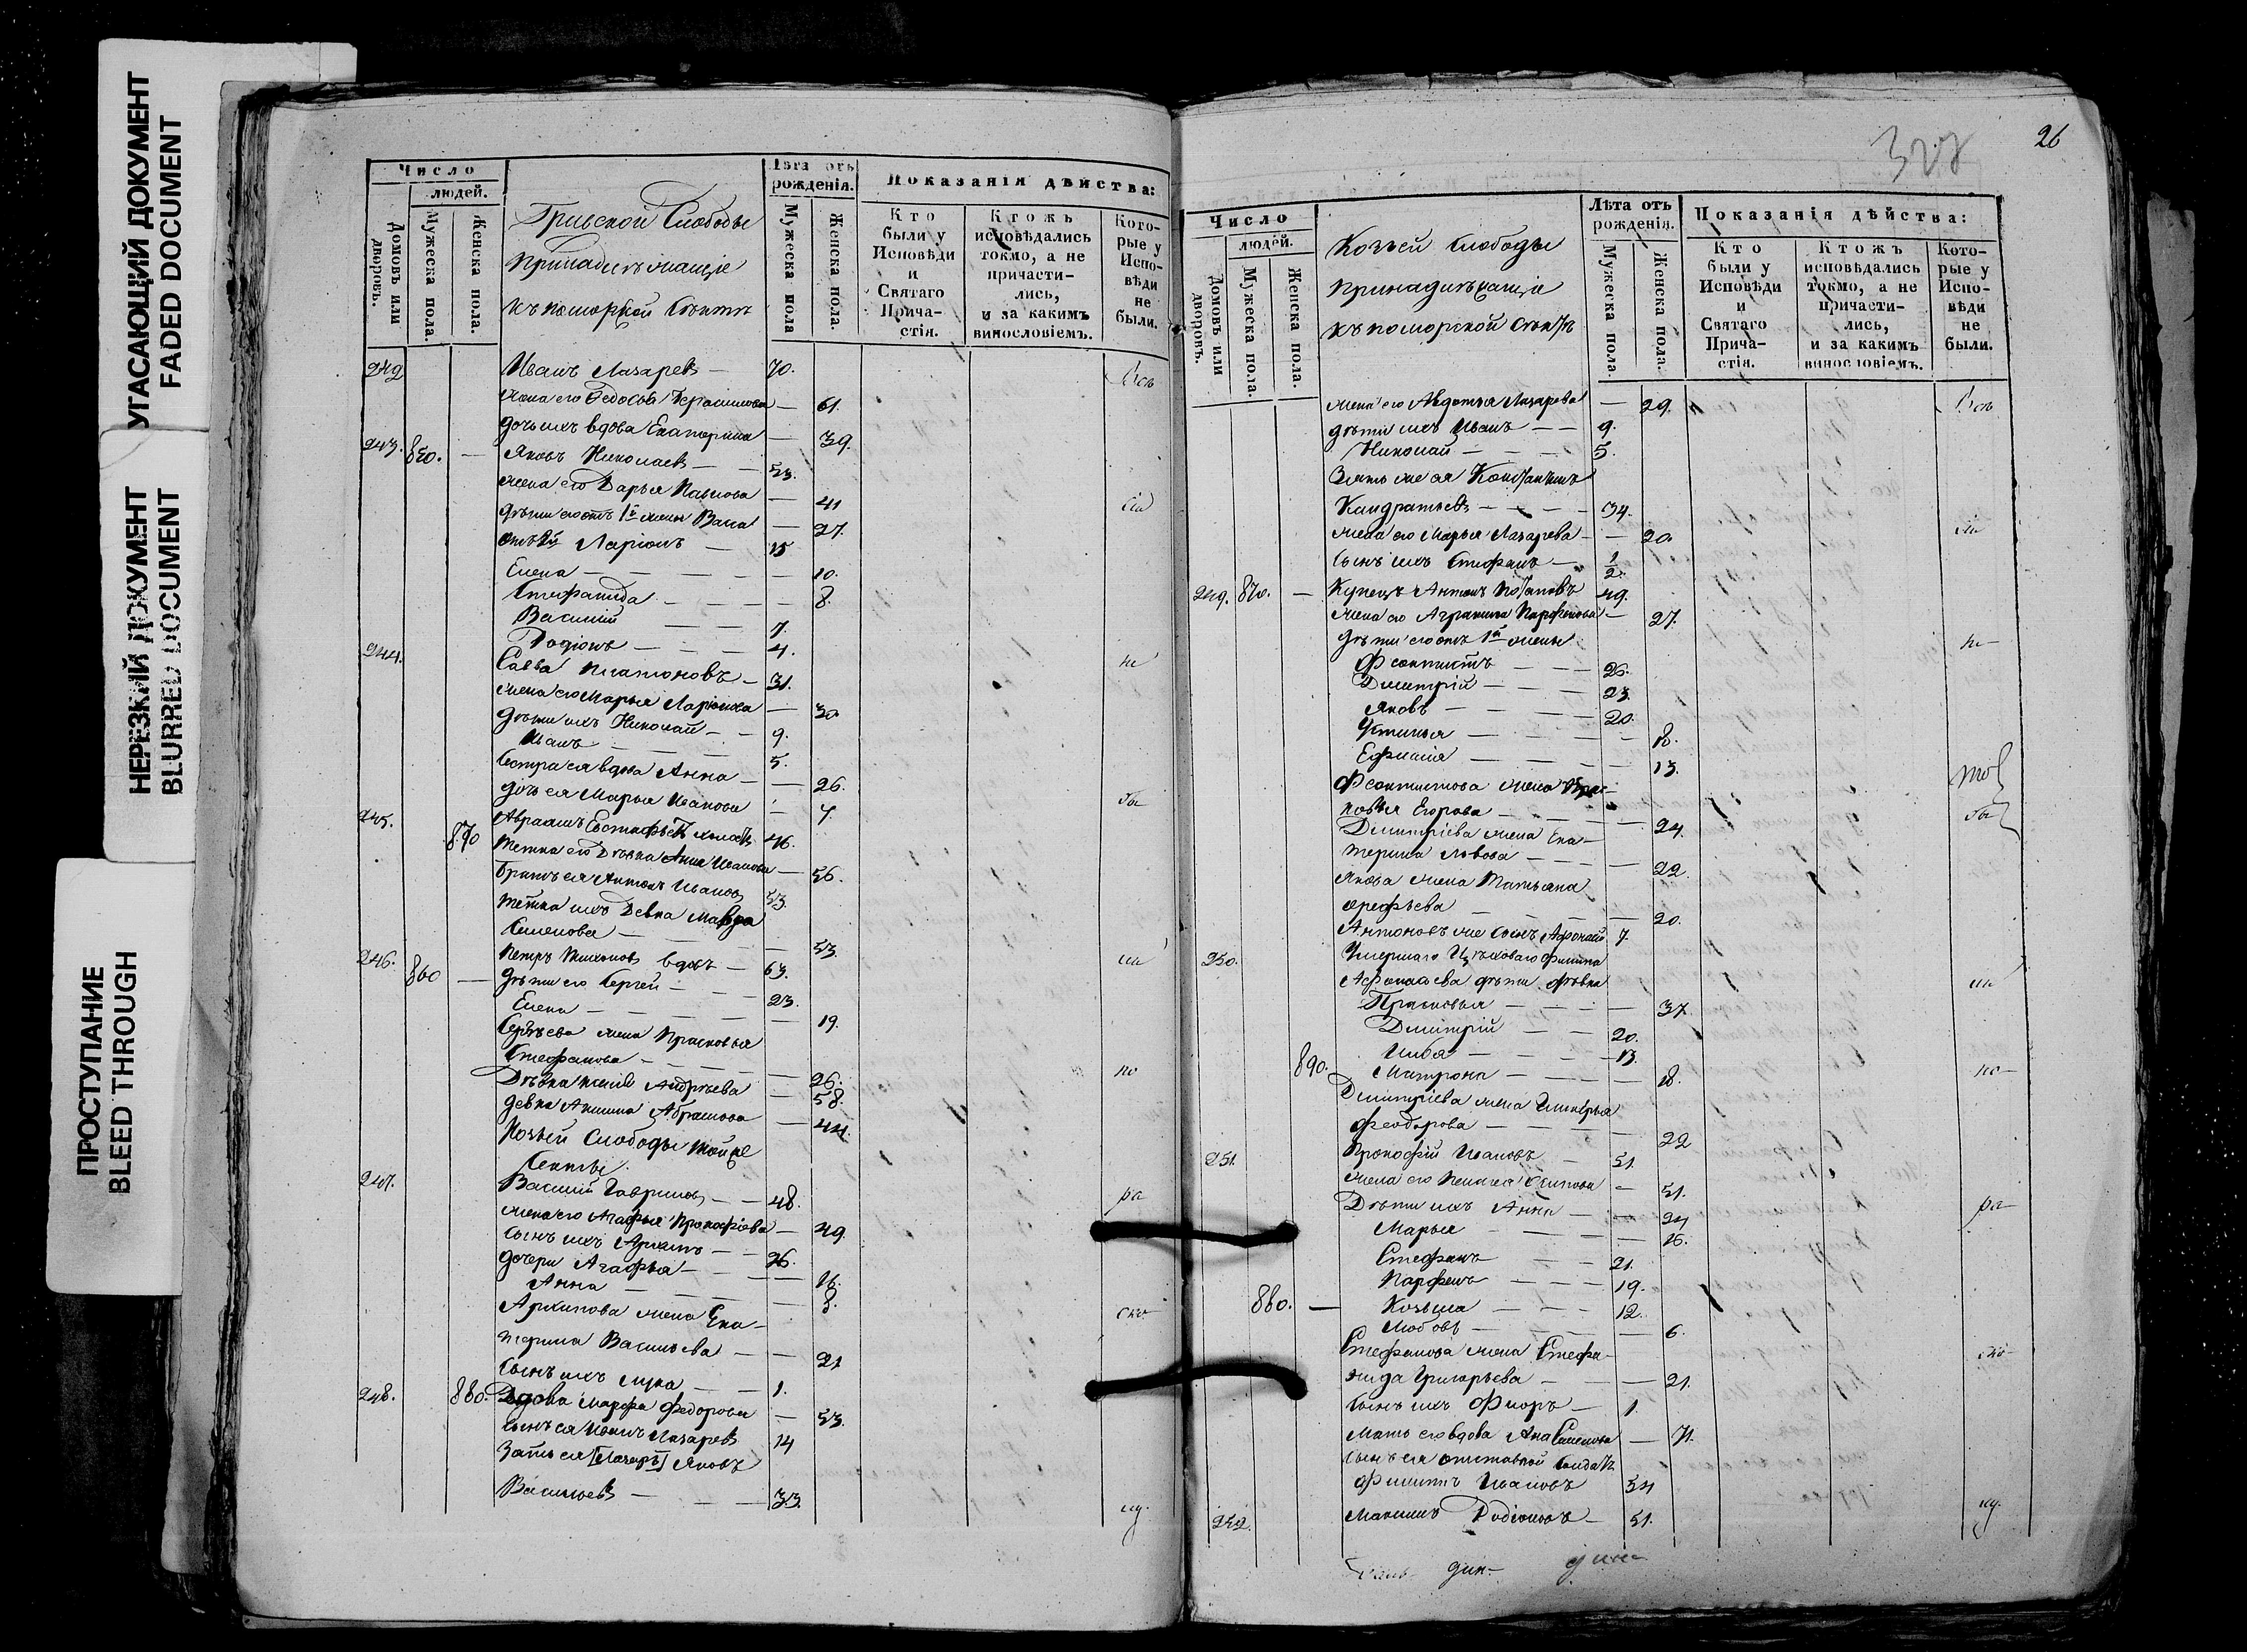 УГАСАЮЩИЙ ДОКУМЕНТ
FADED DOCUMENT
НЕРЕЗКИЙ ДОКУМЕНТ
BLURRED DOCUMENT
ПРОСТУПАНИЕ
BLEED THROUGH
Число
людей.
Домовъ или дворовъ.
Мужеска пола.
Женска пола.
Слободы
Принадлежащіе
къ поморской Сектѣ
Лѣта отъ рожденія.
Мужеска пола
Женска пола.
Показанія дѣйства:
Кто были у Исповѣди и Святаго Причастія.
Ктожъ исповѣдались токмо, а не причастились, и за какимъ винословіемъ.
Которые у Исповѣди не были.
242 Иванъ Лазаревъ — 70.
жена его Федосья Герасимова — 61.
дочь ихъ вдова Екатерина — 39.
243. 850. — Яковъ Николаевъ — — 53.
жена его Дарья Павлова — 41
дѣти его отъ 1й жены — 27.
отъ 2й Ларіонъ — 15
Елена — — — — 10.
Стефанида — — — 8.
Василий — — — 7.
Родіонъ — — — 4.
244. Савва Платоновъ — 31. ни
жена его Марья Ларіонова — 30
дѣти ихъ Николай — — 9.
Иванъ — — — 5.
Сестра ея вдова Анна — — 26.
дочь ея Марья Иванова — 7.
245. Авраамъ 46.
870 тетка его Дѣвка Анна Иванова — 56.
братъ ея Антонъ Ивановъ 53.
тётка ихъ Девка Мавра
Семенова — — — 53.
246. Петръ Тихоновъ вдовъ — 63.
860 — дѣти его Сергей — — 23.
Елена — — — — 19.
Сергѣева жена Прасковья
Стефанова — — — — 26.
Дѣвка Андрѣева — 58.
девка Акилина Абрамова — 44.
Козьей Слободы той же
Секты.
247. Василий Гавриловъ — — 48. ра
жена его Агафья Прокофіева — 49
сынъ ихъ Архипъ — — 26.
дочери Агафья — — — 16.
Анна — — — — 8.
Архипова жена Ека-
терина Васильева — — 21
сынъ ихъ Лука — — 1.
248. 880. Вдова Марфа Федорова — 53.
сынъ ея Лазаревъ 14
Зять ея [Лазарь] Яковъ
Васильевъ — — — 33.
327
26
Число
людей.
Домовъ или дворовъ.
Мужеска пола.
Женска пола.
Козьей Слободы
принадлежащіе
къ поморской Сектѣ
Лѣта отъ рожденія.
Мужеска пола.
Женска пола.
Показанія дѣйства:
Кто были у Исповѣди и Святаго Причастія.
Ктожъ исповѣдались токмо, а не причастились, и за какимъ винословіемъ.
Которые у Исповѣди не были.
жена его Авдотья Лазарева — 29.
дѣти ихъ Иванъ — — 9.
Николай — — — 5.
Зять же ея Константинъ
Кандратьевъ — — — — 34.
жена его Марья Лазарева — — 20
сынъ ихъ Стефанъ — 1/2.
249. 870. — Купецъ Антонъ Потаповъ 49.
жена его Агрипина Парфенова — 27.
дѣти его отъ 1й жены: ни
Феоктистъ — — — 26.
Димитрій — — — 23.
Яковъ — — — — 20.
Устинья — — — — 18.
Ефимия — — — — 13.
Феоктистова жена Прас-
ковья Егорова — — — 24.
Димитріева жена Ека-
терина Львова — — — — 22.
Якова жена Татьяна
Арефьева — — — — 20.
Антоновъ же сынъ Афонасий 7.
250. Умершаго Цѣховаго Филипа
Афонасьева дѣти дѣвка
Прасковья — — — — 37.
Димитрій — — 20.
Илья — — — — 13.
890. Матрона — — — — 18.
Димитріева жена Гликерья
Феодорова — — — — 22
251. Прокофій Ивановъ — 51.
жена его Пелагея Осипова — 51.
Дѣти ихъ Анна — — — 24 ра
Марья — — — — 16.
Стефанъ — — 21.
Парфенъ — — — 19.
880. — Козьма — — — 12.
Любовь — — — — 6.
Стефанова жена Стефа-
нида Григорьева — — — 21.
сынъ ихъ Флоръ — 1.
Мать его вдова Ана Семенова — 71.
сынъ ея отставной солдатъ
Филипъ Ивановъ 54
252. Максимъ Родіоновъ — 51.